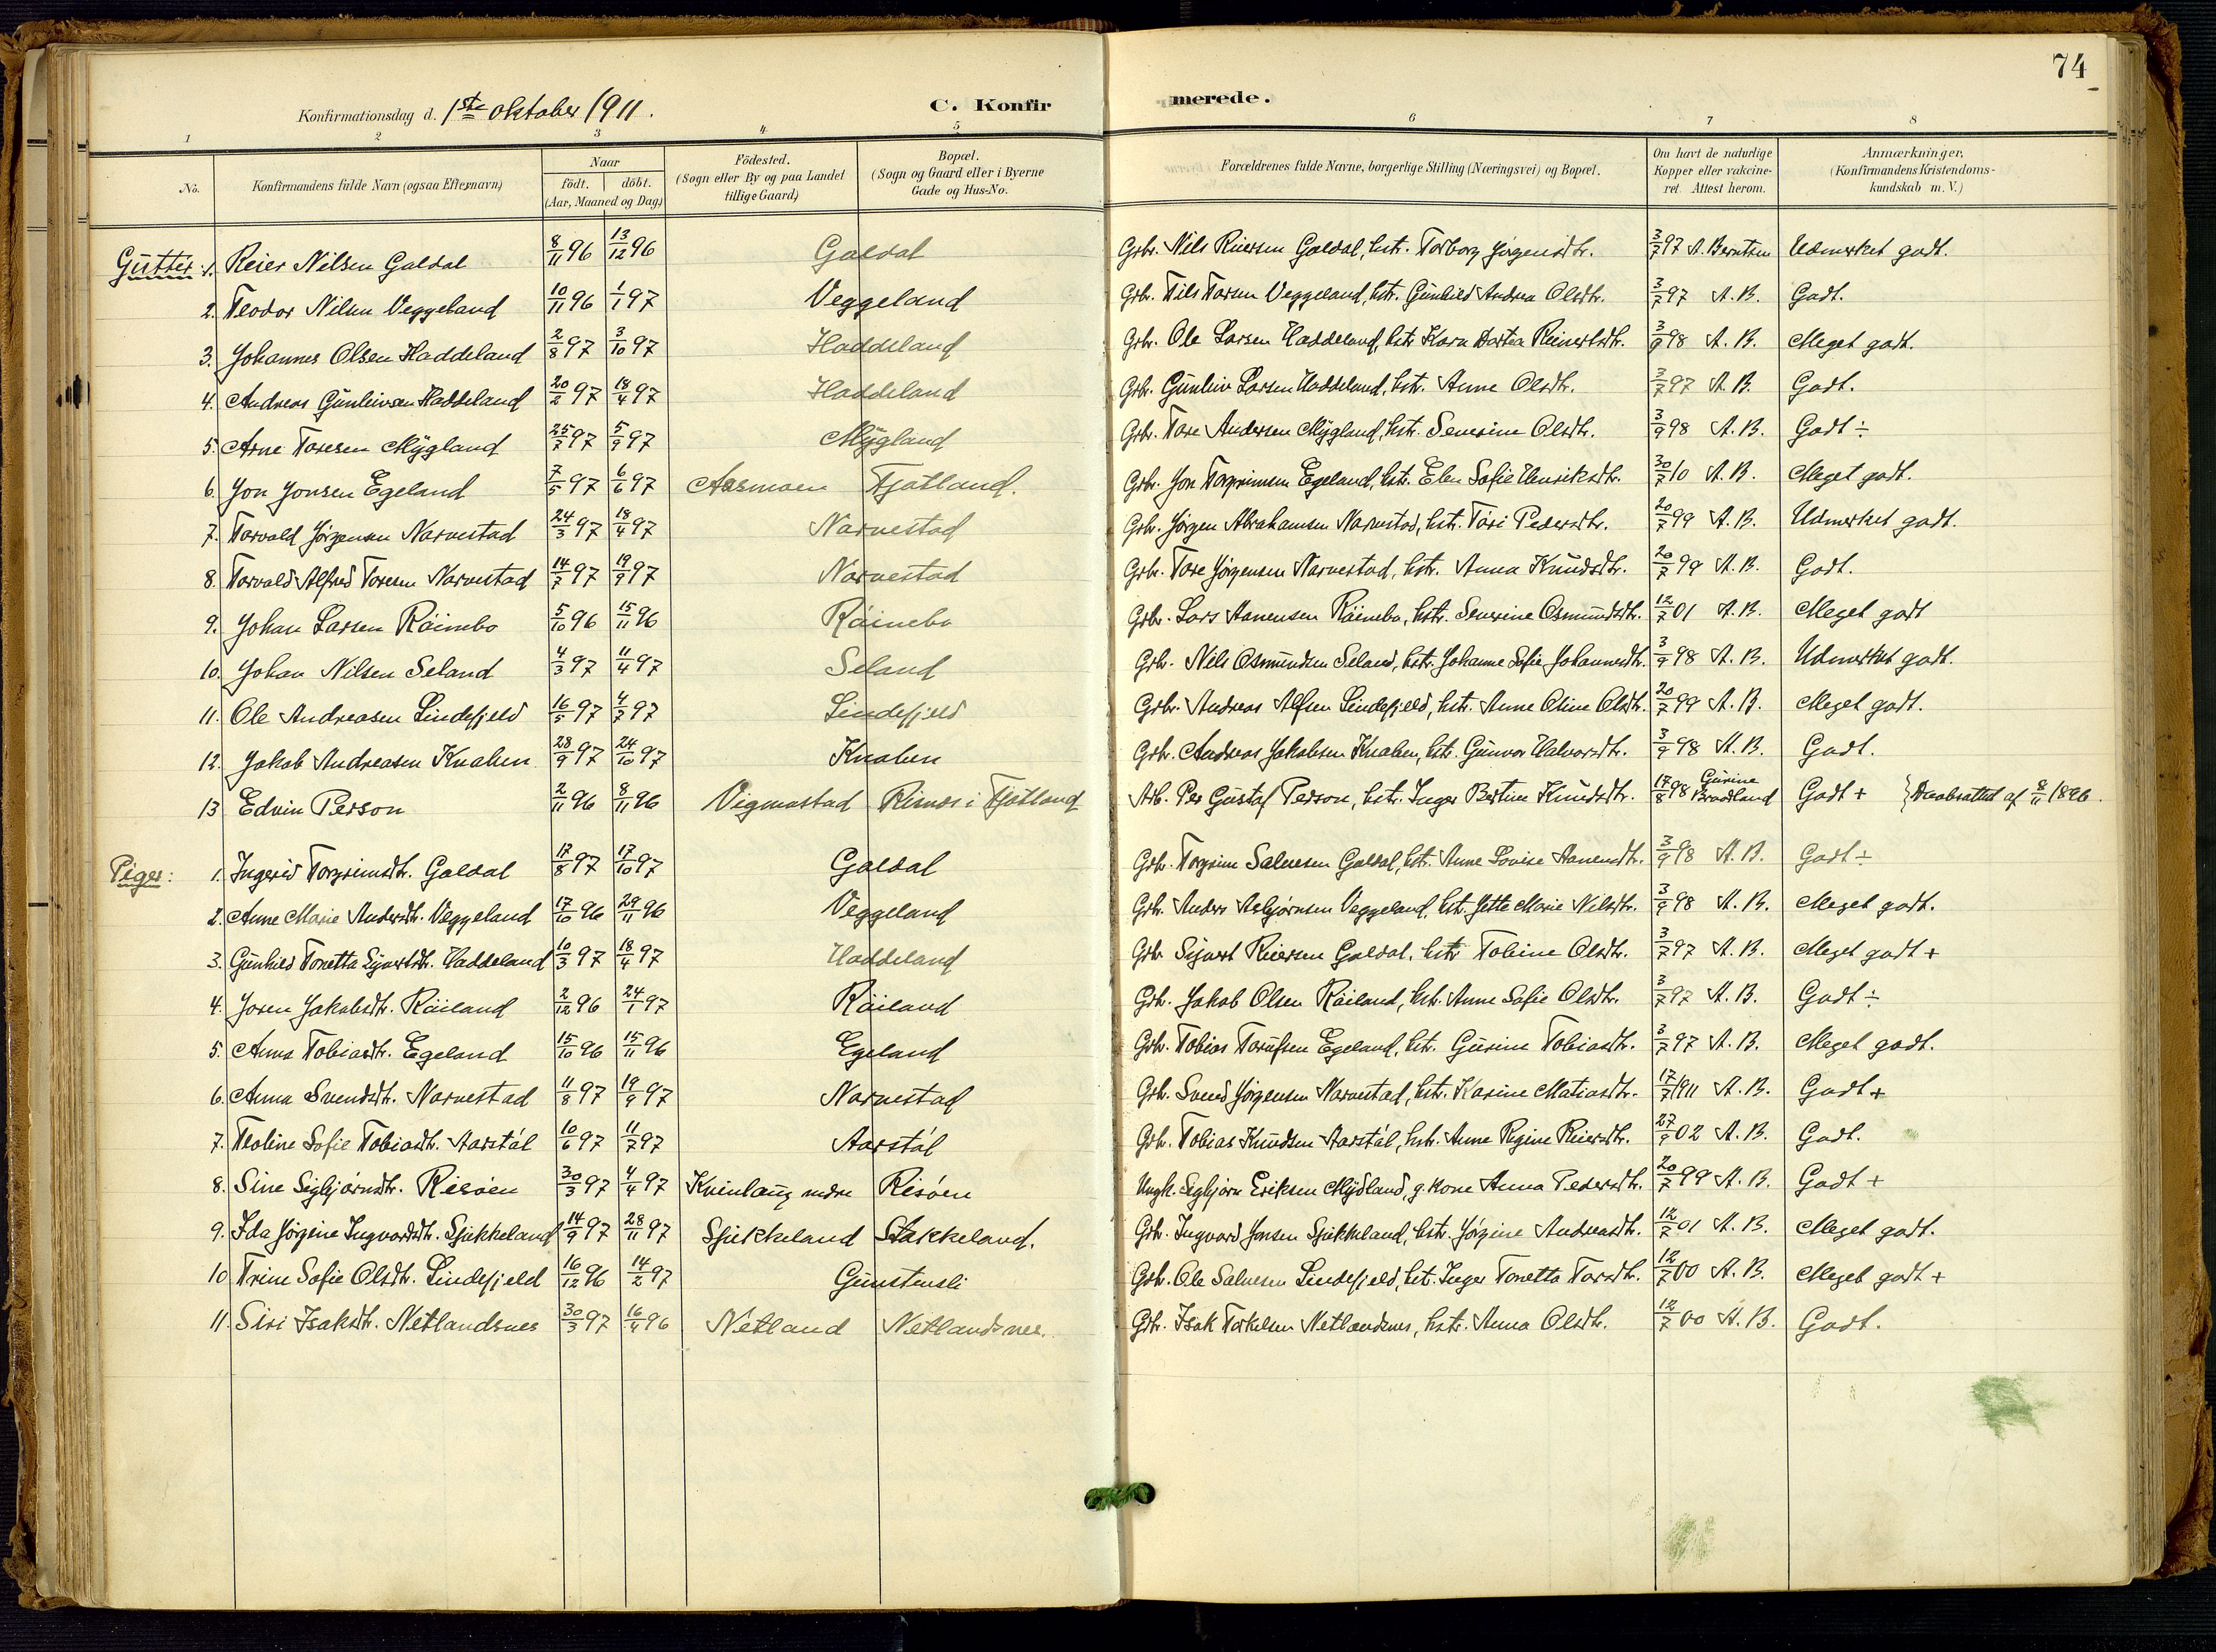 74
Konfirmationsdag d. 1ste oktober 1911.
C. Konfirmerede.
1 2 3 4 5 6 7 8
No. Konfirmandens fulde Navn (ogsaa Efternavn) Naar født. døbt. (Aar, Maaned og Dag) Födested. (Sogn eller By og paa Landet tillige Gaard) Bopæl. (Sogn og Gaard eller i Byerne Gade og Hus-No. Forældrenes fulde Navne, borgerlige Stilling (Næringsvei) og Bopæl. Om havt de naturlige Kopper eller vakcineret. Attest herom. Anmærkninger, (Konfirmandens Kristendomskundskab m. V.)
Gutter: 1. Reier Nilsen Galdal 8/11 96 13/12 96 Galdal Grbr. Nils Reiersen Galdal, hstr. Torborg Jørgensdtr. 3/7 97 A. Berntsen Udmerket godt.
2. Teodor Nilsen Veggeland 10/11 96 1/1 97 Veggeland Grbr. Nils Torsen Veggeland, hstr. Gunhild Andrea Olsdtr. 3/7 97 A. B. Godt.
3. Johannes Olsen Haddeland 2/8 97 3/10 97 Haddeland Grbr. Ole Larsen Haddeland, hstr. Kora Dortea Reinertsdtr. 3/9 98 A. B. Meget godt.
4. Andreas Gunleivsen Haddeland 20/2 97 18/4 97 Haddeland Grbr. Gunleiv Larsen Haddeland, hstr. Anne Olsdtr. 3/7 97 A. B. Godt.
5. Arne Toresen Mygland 25/7 97 5/9 97 Mygland Grbr. Tore Andersen Mygland, hstr. Severine Olsdtr. 3/9 98 A. B. Godt ÷
6. Jon Jonsen Egeland 7/5 97 6/6 97 Aasmoen Fjotland. Grbr. Jon Torgrimsen Egeland, hstr. Elen Sofie Henriksdtr. 30/7 10 A. B. Meget godt.
7. Torvald Jørgensen Narvestad 24/3 97 18/4 97 Narvestad Grbr. Jørgen Abrahamsen Narvestad, hstr. Tori Pedersdtr. 20/7 99 A. B. Udmerket godt.
8. Torvald Alfred Toresen Narvestad 14/7 97 19/9 97 Narvestad Grbr. Tore Jørgensen Narvestad, hstr. Anna Knudsdtr. 20/7 99 A. B. Godt.
9. Johan Larsen Röinebo 5/10 96 15/11 96 Röinebo Grbr. Lars Hanensen Röinebo, hstr. Severine Osmundsdtr. 12/7 01 A. B. Meget godt
10. Johan Nilsen Seland 4/3 97 11/4 97 Seland Grbr. Nils Osmundsen Seland, hstr. Johanne Sofie Johannesdtr. 3/9 98 A. B. Udmerket godt.
11. Ole Andreasen Lindefjeld 16/5 97 4/7 97 Lindefjeld Grbr. Andreas Alfsen Lindefjeld, hstr. Anne Oline Olsdtr. 20/7 99 A. B. Meget godt.
12. Jakob Andreasen Knaben 28/9 97 24/10 97 Knaben Grbr. Andreas Jakobsen Knaben, hstr. Gunvor Halvorsdtr. 3/9 98 A. B. Godt.
13 Edvin Person 2/11 96 8/11 96 Vigmostad Risnes i Fjotland Arb. Per Gustaf Person, hstr. Inger Bertine Knudsdtr. 17/8 98 Gurine Braadland Godt + } Daabsattest af 8/11 1896.
Piger: 1. Ingerid Torgrimsdtr. Galdal 17/8 97 17/10 97 Galdal Grbr. Torgrim Salvesen Galdal, hstr. Anne Lovise Hanensdtr. 3/9 98 A. B. Godt ÷
2. Anne Marie Andersdtr. Veggeland 17/10 96 29/11 96 Veggeland Grbr. Anders Asbjørnsen Veggeland, hst. Jette Marie Nilsdtr. 3/9 98 A. B. Meget godt.
3. Gunhild Tonetta Sigvartsdtr. Haddeland 10/3 97 18/4 97 Haddeland Grbr Sigvart Reiersen Galdal, hstr Tobine Olsdtr. 3/7 97 A. B. Meget godt +
4. Josen Jakobsdtr. Röiland 2/12 96 24/1 97 Röiland Grbr. Jakob Olsen Röiland, hstr. Anne Sofie Olsdtr. 3/7 97 A. B. Godt ÷
5. Anna Tobiasdtr. Egeland 15/10 96 15/11 96 Egeland Grbr. Tobias Torufsen Egeland, hstr. Gurine Tobiasdtr. 3/7 97 A. B. Meget godt.
6. Anna Svendsdtr. Narvestad 11/8 97 19/9 97 Narvestad Grbr. Svend Jørgensen Narvestad, hstr. Karine Matiasdtr. 17/7 1911 A. B. Godt +
7. Teoline Sofie Tobiasdtr. Aarstøl 10/6 97 11/7 97 Aarstøl Grbr. Tobias Knudsen Aarstøl, hstr. Anne Regine Reiersdtr. 27/9 02 A. B. Godt.
8. Sine Sigbjørnsdtr. Risøen 30/3 97 4/4 97 Kvinlaug nedre Risøen Ungk. Sigbjørn Eriksen Mydland, g. kone Anna Pedersdtr. 20/7 99 A. B. Godt +
9. Ida Jørgine Ingvardsdtr. Sjikkeland 14/9 97 28/11 97 Sjikkeland Stakkeland. Grbr. Ingvard Jonsen Sjikkeland, hstr. Jørgine Andreasdtr. 12/7 01 A. B. Meget godt.
10 Trine Sofie Olsdtr. Lindefjeld 16/12 96 14/2 97 Gunstensli Grbr. Ole Salvesen Lindefjeld, hstr. Inger Tonetta Torsdtr. 12/7 00 A. B. Meget godt +
11. Siri Isaksdtr. Netlandsnes 30/3 97 16/4 96 Netland Netlandsnes. Grbr. Isak Torkelsen Netlandsnes, hstr. Anna Olsdtr. 12/7 00 A. B. Godt.